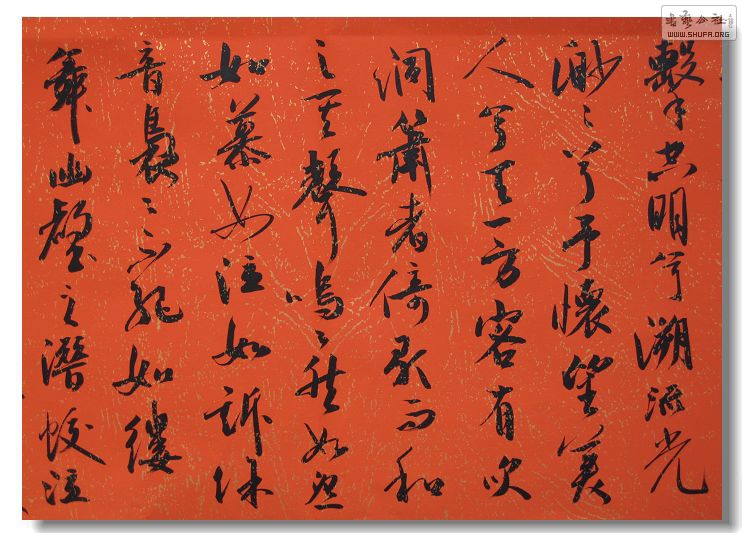 擊空明兮溯流光
渺〻兮予懷望美
人兮天一方客有吹
洞簫者倚歌而和
之其聲嗚〻然如怨
如慕如泣如訴餘
音裊〻不絕如縷
舞幽壑之潛蛟泣
书艺公社
WWW.SHUFA.ORG